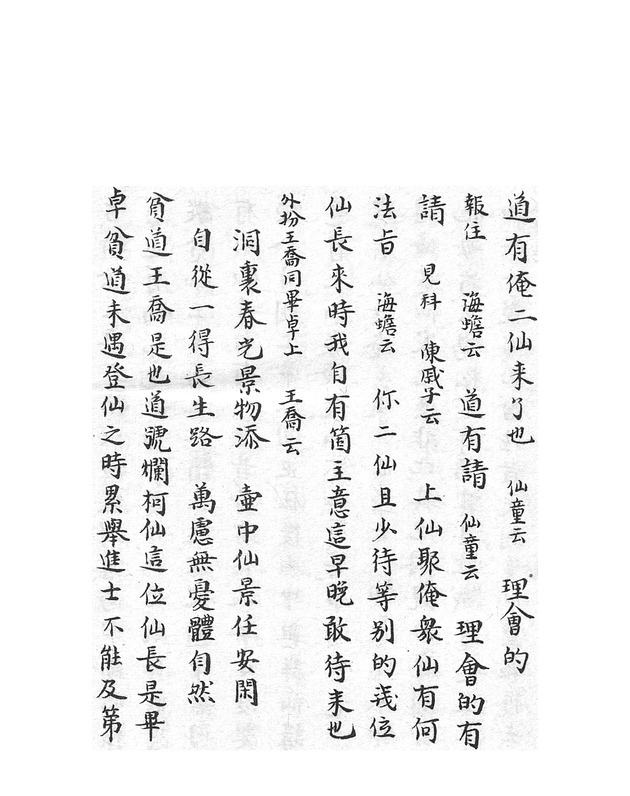 道有俺二仙来了也　仙童云　理會的
報住　海蟾云　道有請　仙童云　理會的有
請　見科　陳戚子云　上仙聚俺衆仙有何
法旨　海蟾云　你二仙且少待等别的幾位
仙長來時我自有箇主意這早晚敢待来也
外扮王喬同畢卓上　王喬云
洞裏春光景物添　壺中仙景任安閑
自從一得長生路　萬慮無憂體自然
貧道王喬是也道號爛柯仙這位仙長是畢
卓貧道未遇登仙之時累舉進士不能及第